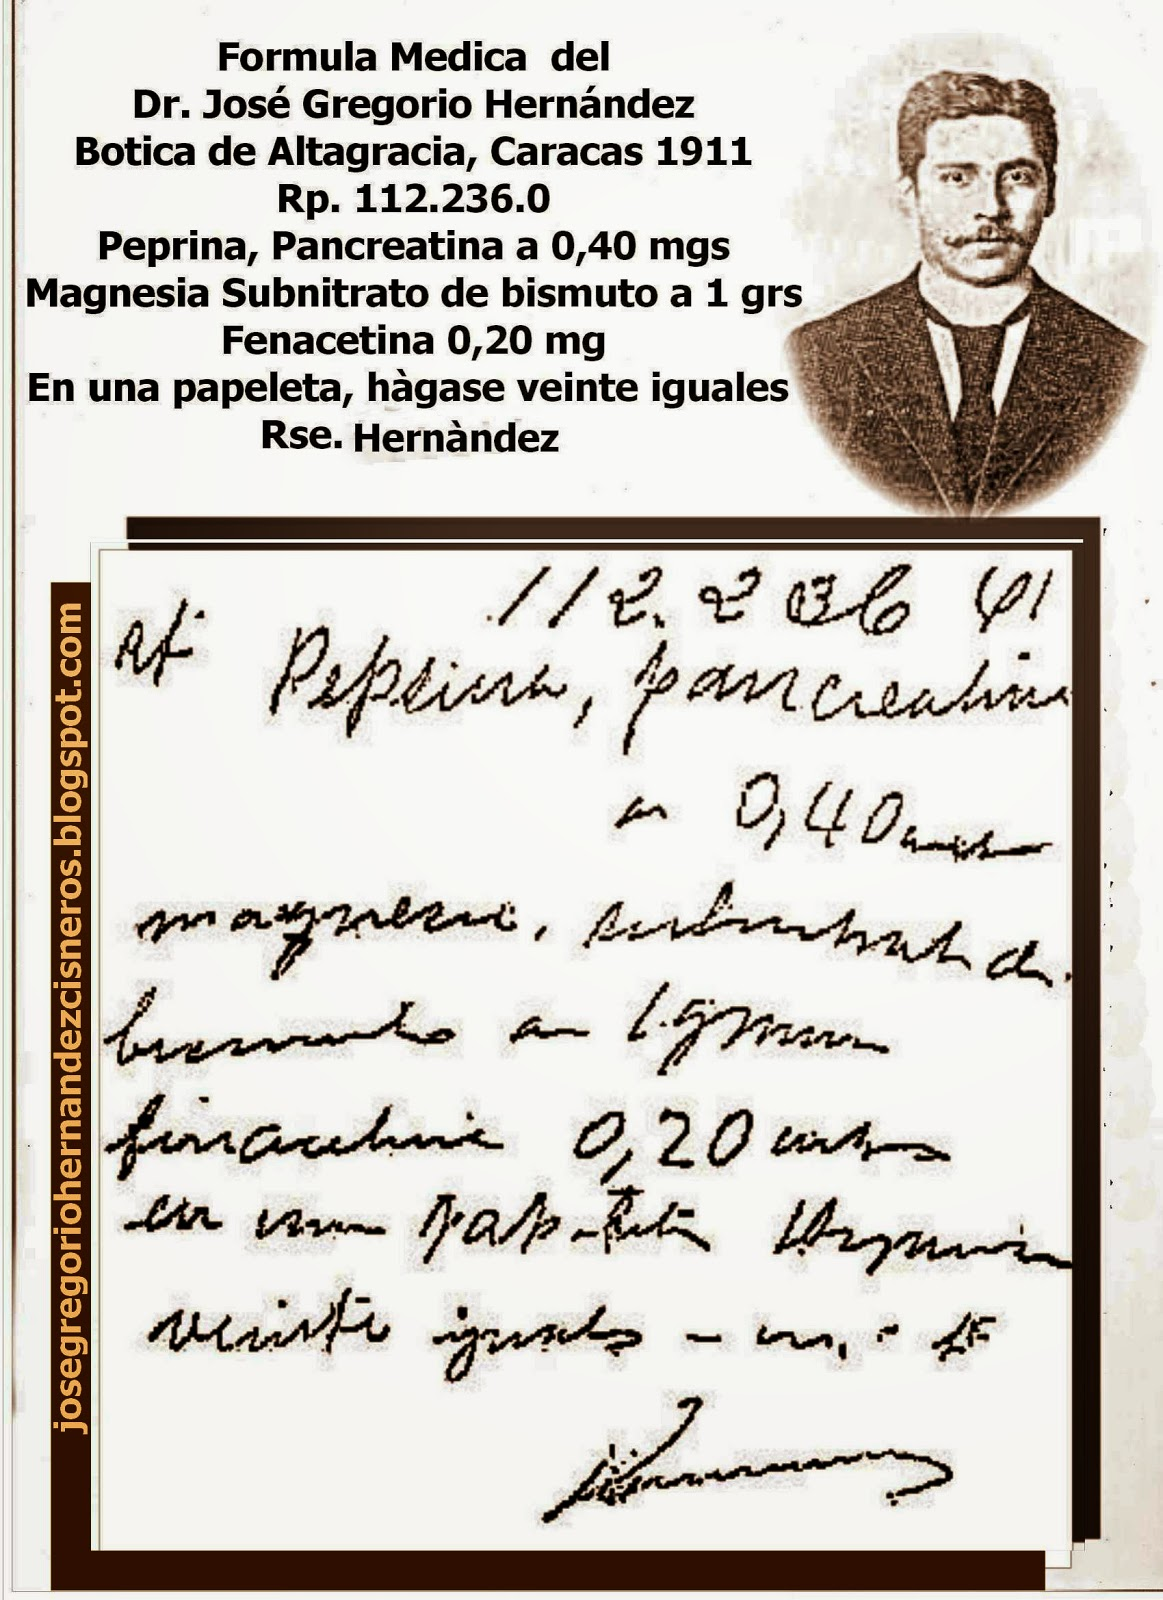 Formula Medica del
Dr. José Gregorio Hernández
Botica de Altagracia, Caracas 1911
Rp. 112.236.0
Peprina, Pancreatina a 0,40 mgs
Magnesia Subnitrato de bismuto a 1 grs
Fenacetina 0,20 mg
En una papeleta, hàgase veinte iguales
Rse. Hernàndez
josegregoriohernandezcisneros.blogspot.com
112.236
Pepsina, pancreatina
a 0,40
magnesia, subnitrato de
bismuto a 1 gramo
fenacetina 0,20
en una papeleta Hágase
veinte iguales